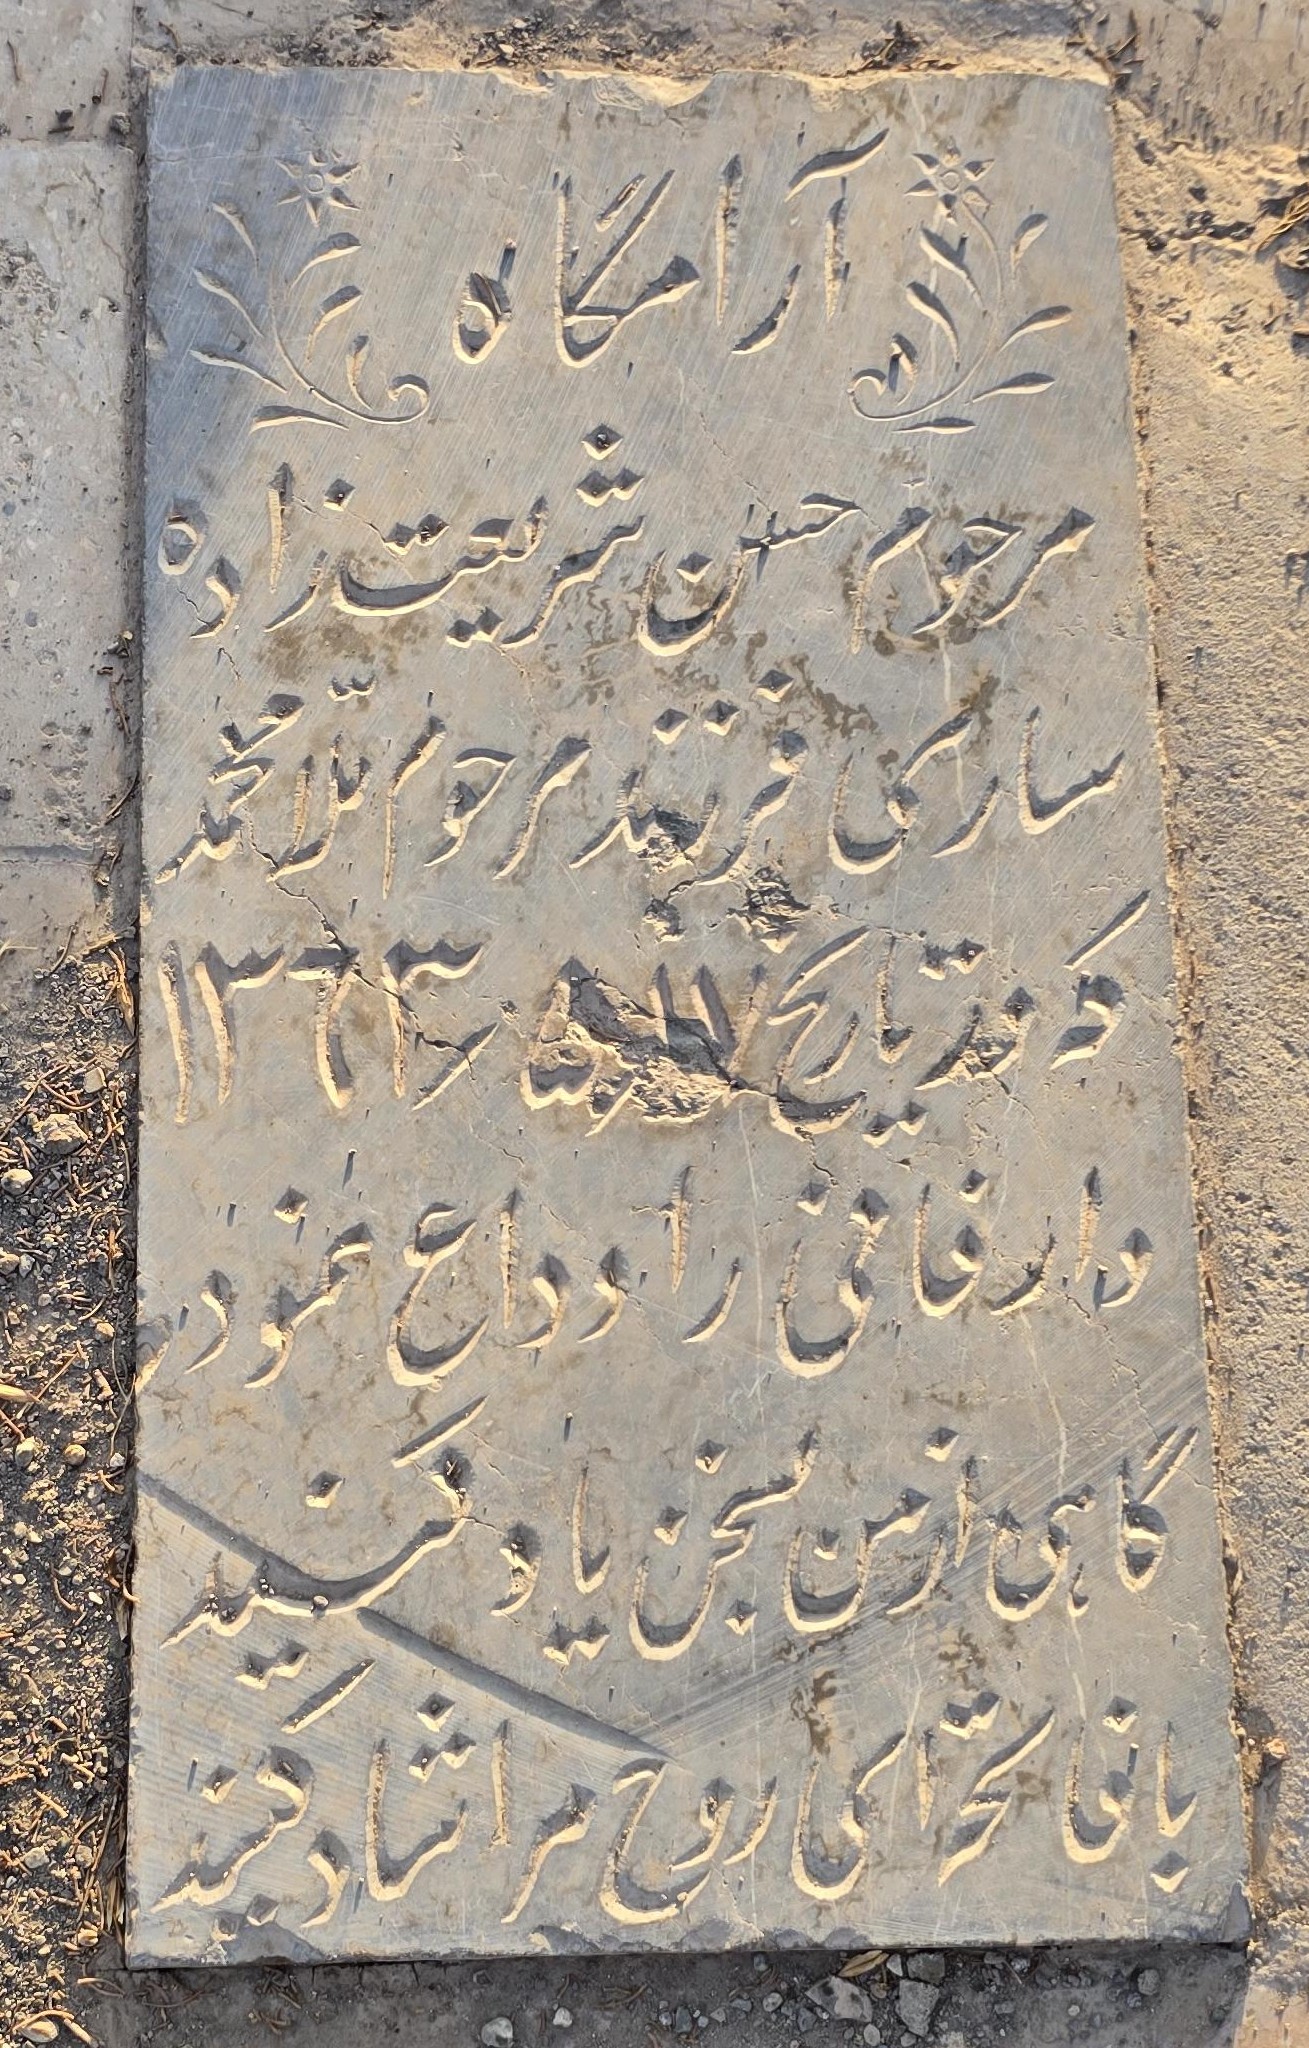 آرامگاه
مرحوم حسن شریعت زاده
ساروی فرزند مرحوم ملا محمد
که در تاریخ ۱۳۶۳
دار فانی را وداع نمود
گاهی از من بسخن یاد کنید
با فاتحه ای روح مرا شاد کنید